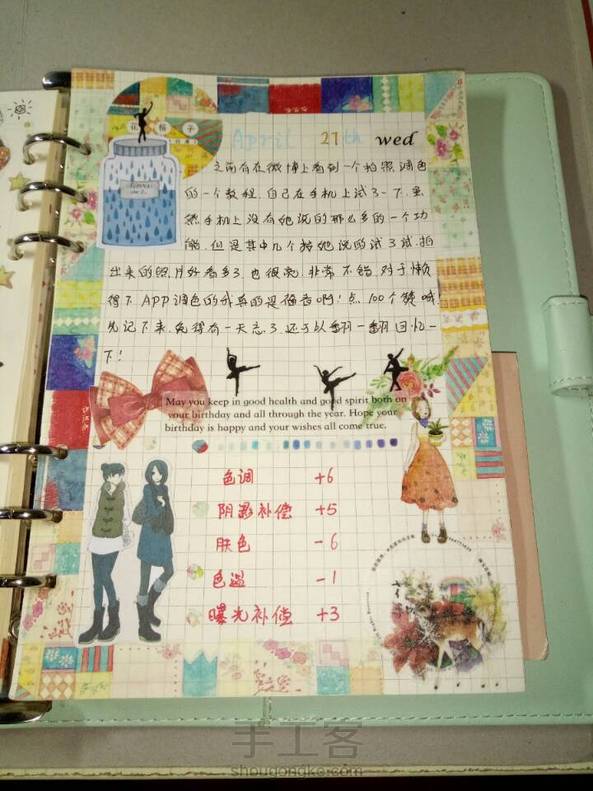 April 27th wed
之前有在微博上看到一个拍照调色
的一个教程.自己在手机上试了一下.虽
然手机上没有她说的那么多的一个功
能.但是其中几个按她说的试了试.拍
出来的照片好看多了.也很亮.非常不错.对于懒
得下APP调色的我真的是福音啊!点100个赞哦.
先记下来.免得有一天忘了.还可以翻一翻回忆一
下!
May you keep in good health and good spirit both on
your birthday and all through the year. Hope your
birthday is happy and your wishes all come true.
色调 +6
阴影补偿 +5
肤色 -6
色温 -1
曝光补偿 +3
手工客
shougongke.com